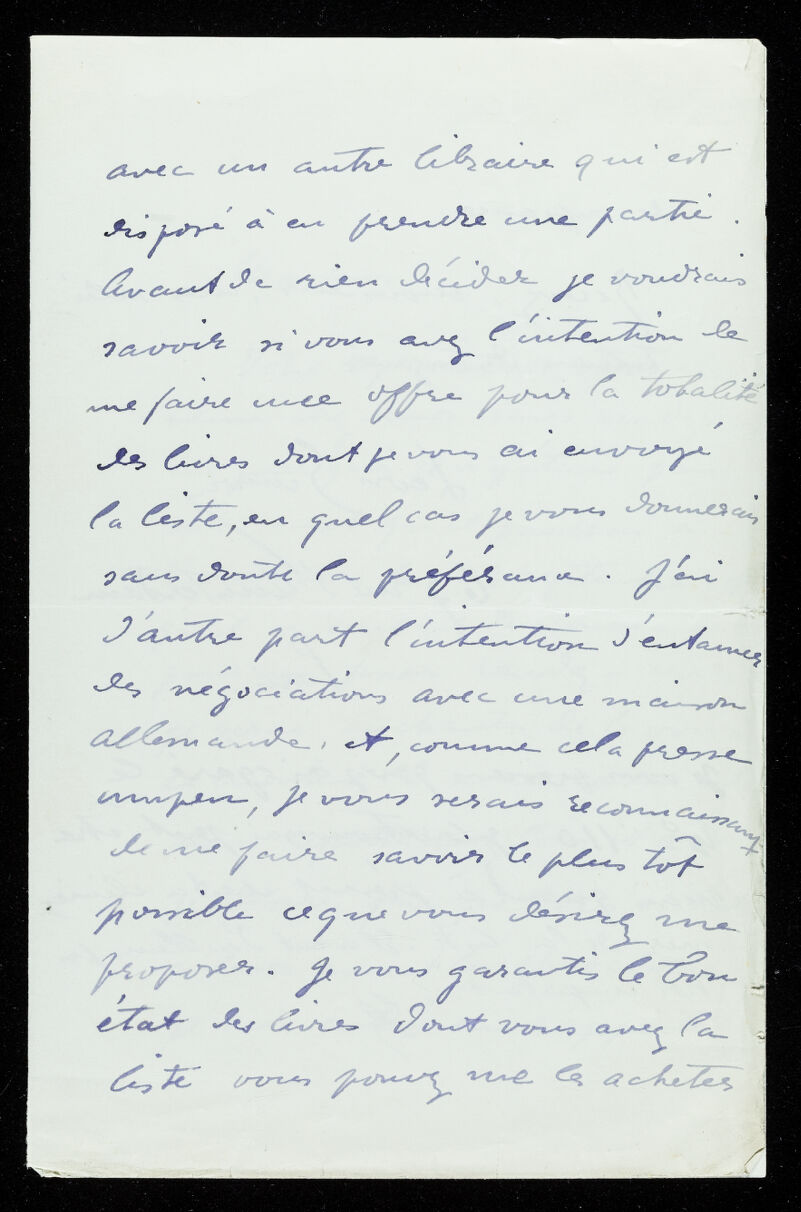 avec un autre libraire qui est
disposé à en prendre une partie.
Avant de rien décider je voudrais
savoir si vous avez l'intention de
me faire une offre pour la totalité
des livres dont je vous ai envoyé
la liste, en quel cas je vous donnerais
sans doute la préférance. J'ai
d'autre part l'intention d'entamer
des négociations avec une maison
allemande. et, comme cela presse
un peu, je vous serais reconnaissant
de me faire savoir le plus tôt
possible ce que vous désirez me
proposer. Je vous garantis le bon
état des livres dont vous avez la
liste vous pouvez me les acheter